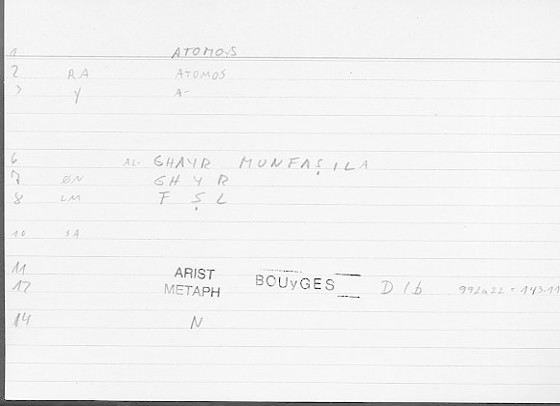 1 ATOMOS
2 RA ATOMOS
3 Y A-
6 AL- GHAYR MUNFAṢILA
7 ØN GHYR
8 LM FṢL
10 SA
11 ARIST
12 METAPH BOUyGES D 1 b 992a22 = 143.11
14 N